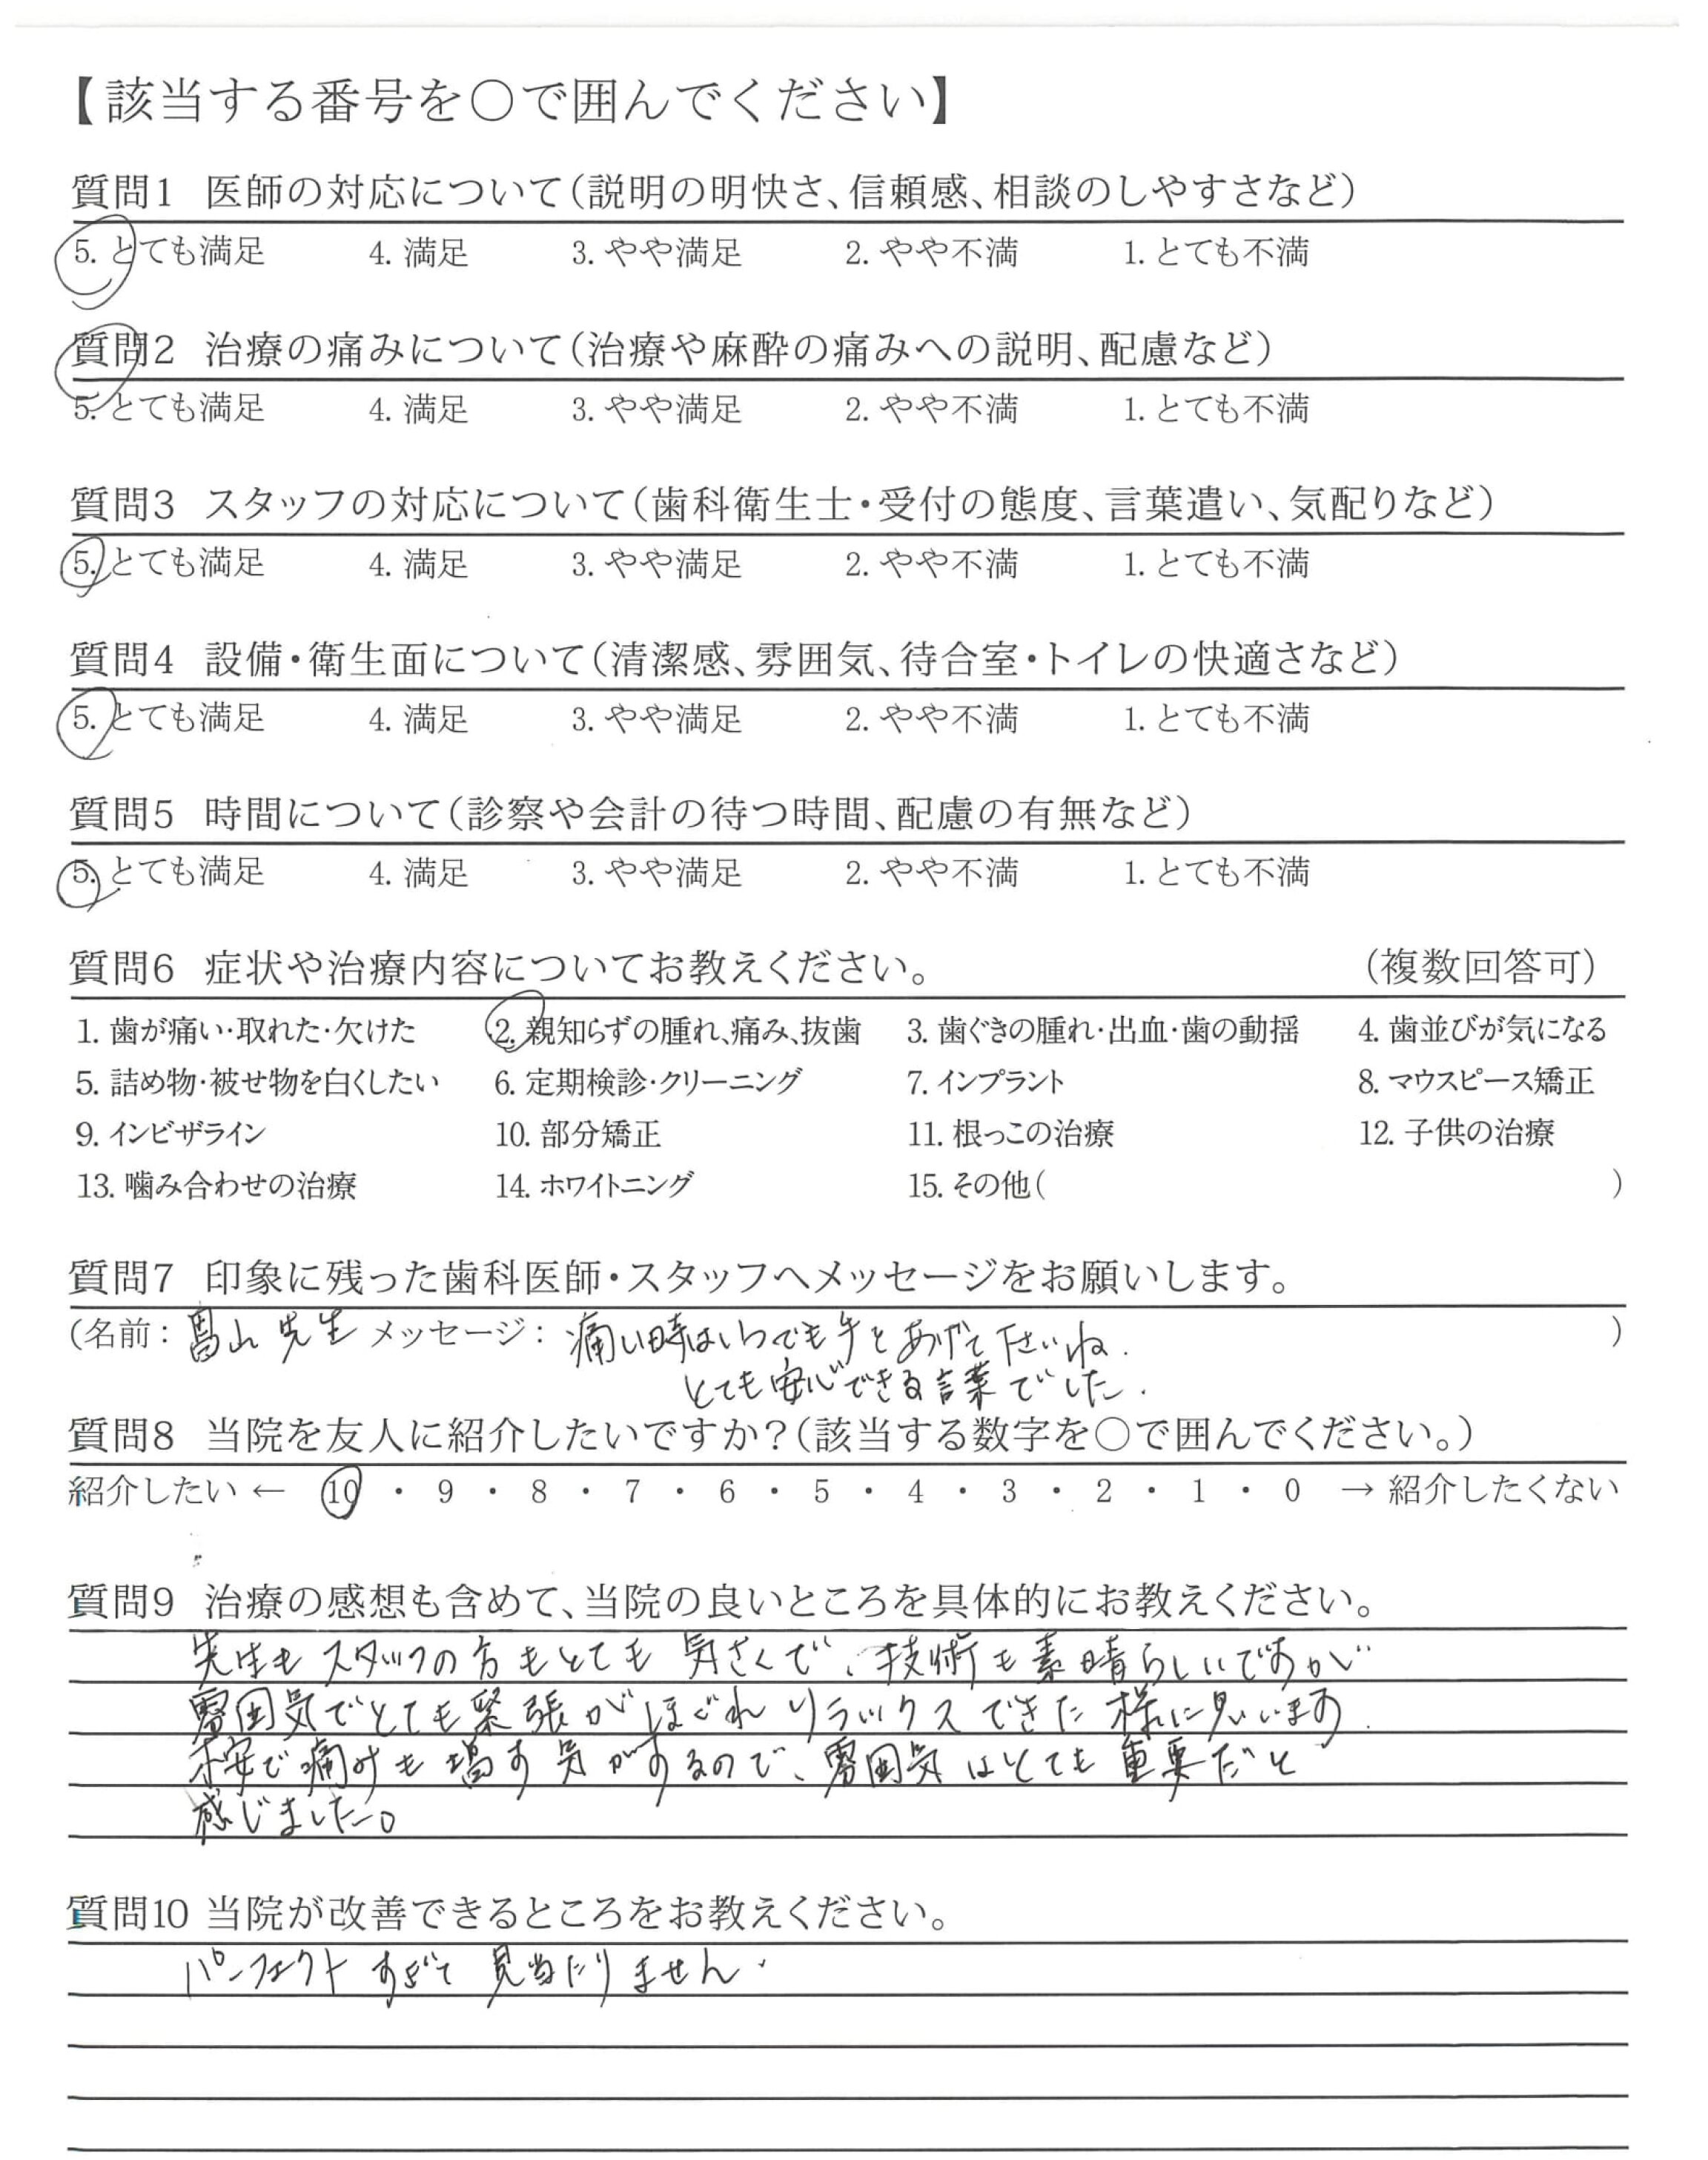 【該当する番号を○で囲んでください】
質問1 医師の対応について(説明の明快さ、信頼感、相談のしやすさなど)
5. とても満足 4. 満足 3. やや満足 2. やや不満 1. とても不満
質問2 治療の痛みについて(治療や麻酔の痛みへの説明、配慮など)
5. とても満足 4. 満足 3. やや満足 2. やや不満 1. とても不満
質問3 スタッフの対応について(歯科衛生士・受付の態度、言葉遣い、気配りなど)
5. とても満足 4. 満足 3. やや満足 2. やや不満 1. とても不満
質問4 設備・衛生面について(清潔感、雰囲気、待合室・トイレの快適さなど)
5. とても満足 4. 満足 3. やや満足 2. やや不満 1. とても不満
質問5 時間について(診察や会計の待つ時間、配慮の有無など)
5. とても満足 4. 満足 3. やや満足 2. やや不満 1. とても不満
質問6 症状や治療内容についてお教えください。 (複数回答可)
1. 歯が痛い・取れた・欠けた 2. 親知らずの腫れ、痛み、抜歯 3. 歯ぐきの腫れ・出血・歯の動揺 4. 歯並びが気になる
5. 詰め物・被せ物を白くしたい 6. 定期検診・クリーニング 7. インプラント 8. マウスピース矯正
9. インビザライン 10. 部分矯正 11. 根っこの治療 12. 子供の治療
13. 噛み合わせの治療 14. ホワイトニング 15. その他( )
質問7 印象に残った歯科医師・スタッフへメッセージをお願いします。
(名前: 髙山 先生 メッセージ: 痛い時はいつでも手をあげて下さいね. )
とても安心できる言葉でした.
質問8 当院を友人に紹介したいですか?(該当する数字を○で囲んでください。)
紹介したい ← 10 ・ 9 ・ 8 ・ 7 ・ 6 ・ 5 ・ 4 ・ 3 ・ 2 ・ 1 ・ 0 → 紹介したくない
質問9 治療の感想も含めて、当院の良いところを具体的にお教えください。
先生もスタッフの方もとても気さくで、技術も素晴らしいですが
雰囲気でとても緊張がほぐれリラックスできた様に思います.
不安で痛みも増す気がするので、雰囲気はとても重要だと
感じました。
質問10 当院が改善できるところをお教えください。
パーフェクトすぎて見当たりません.